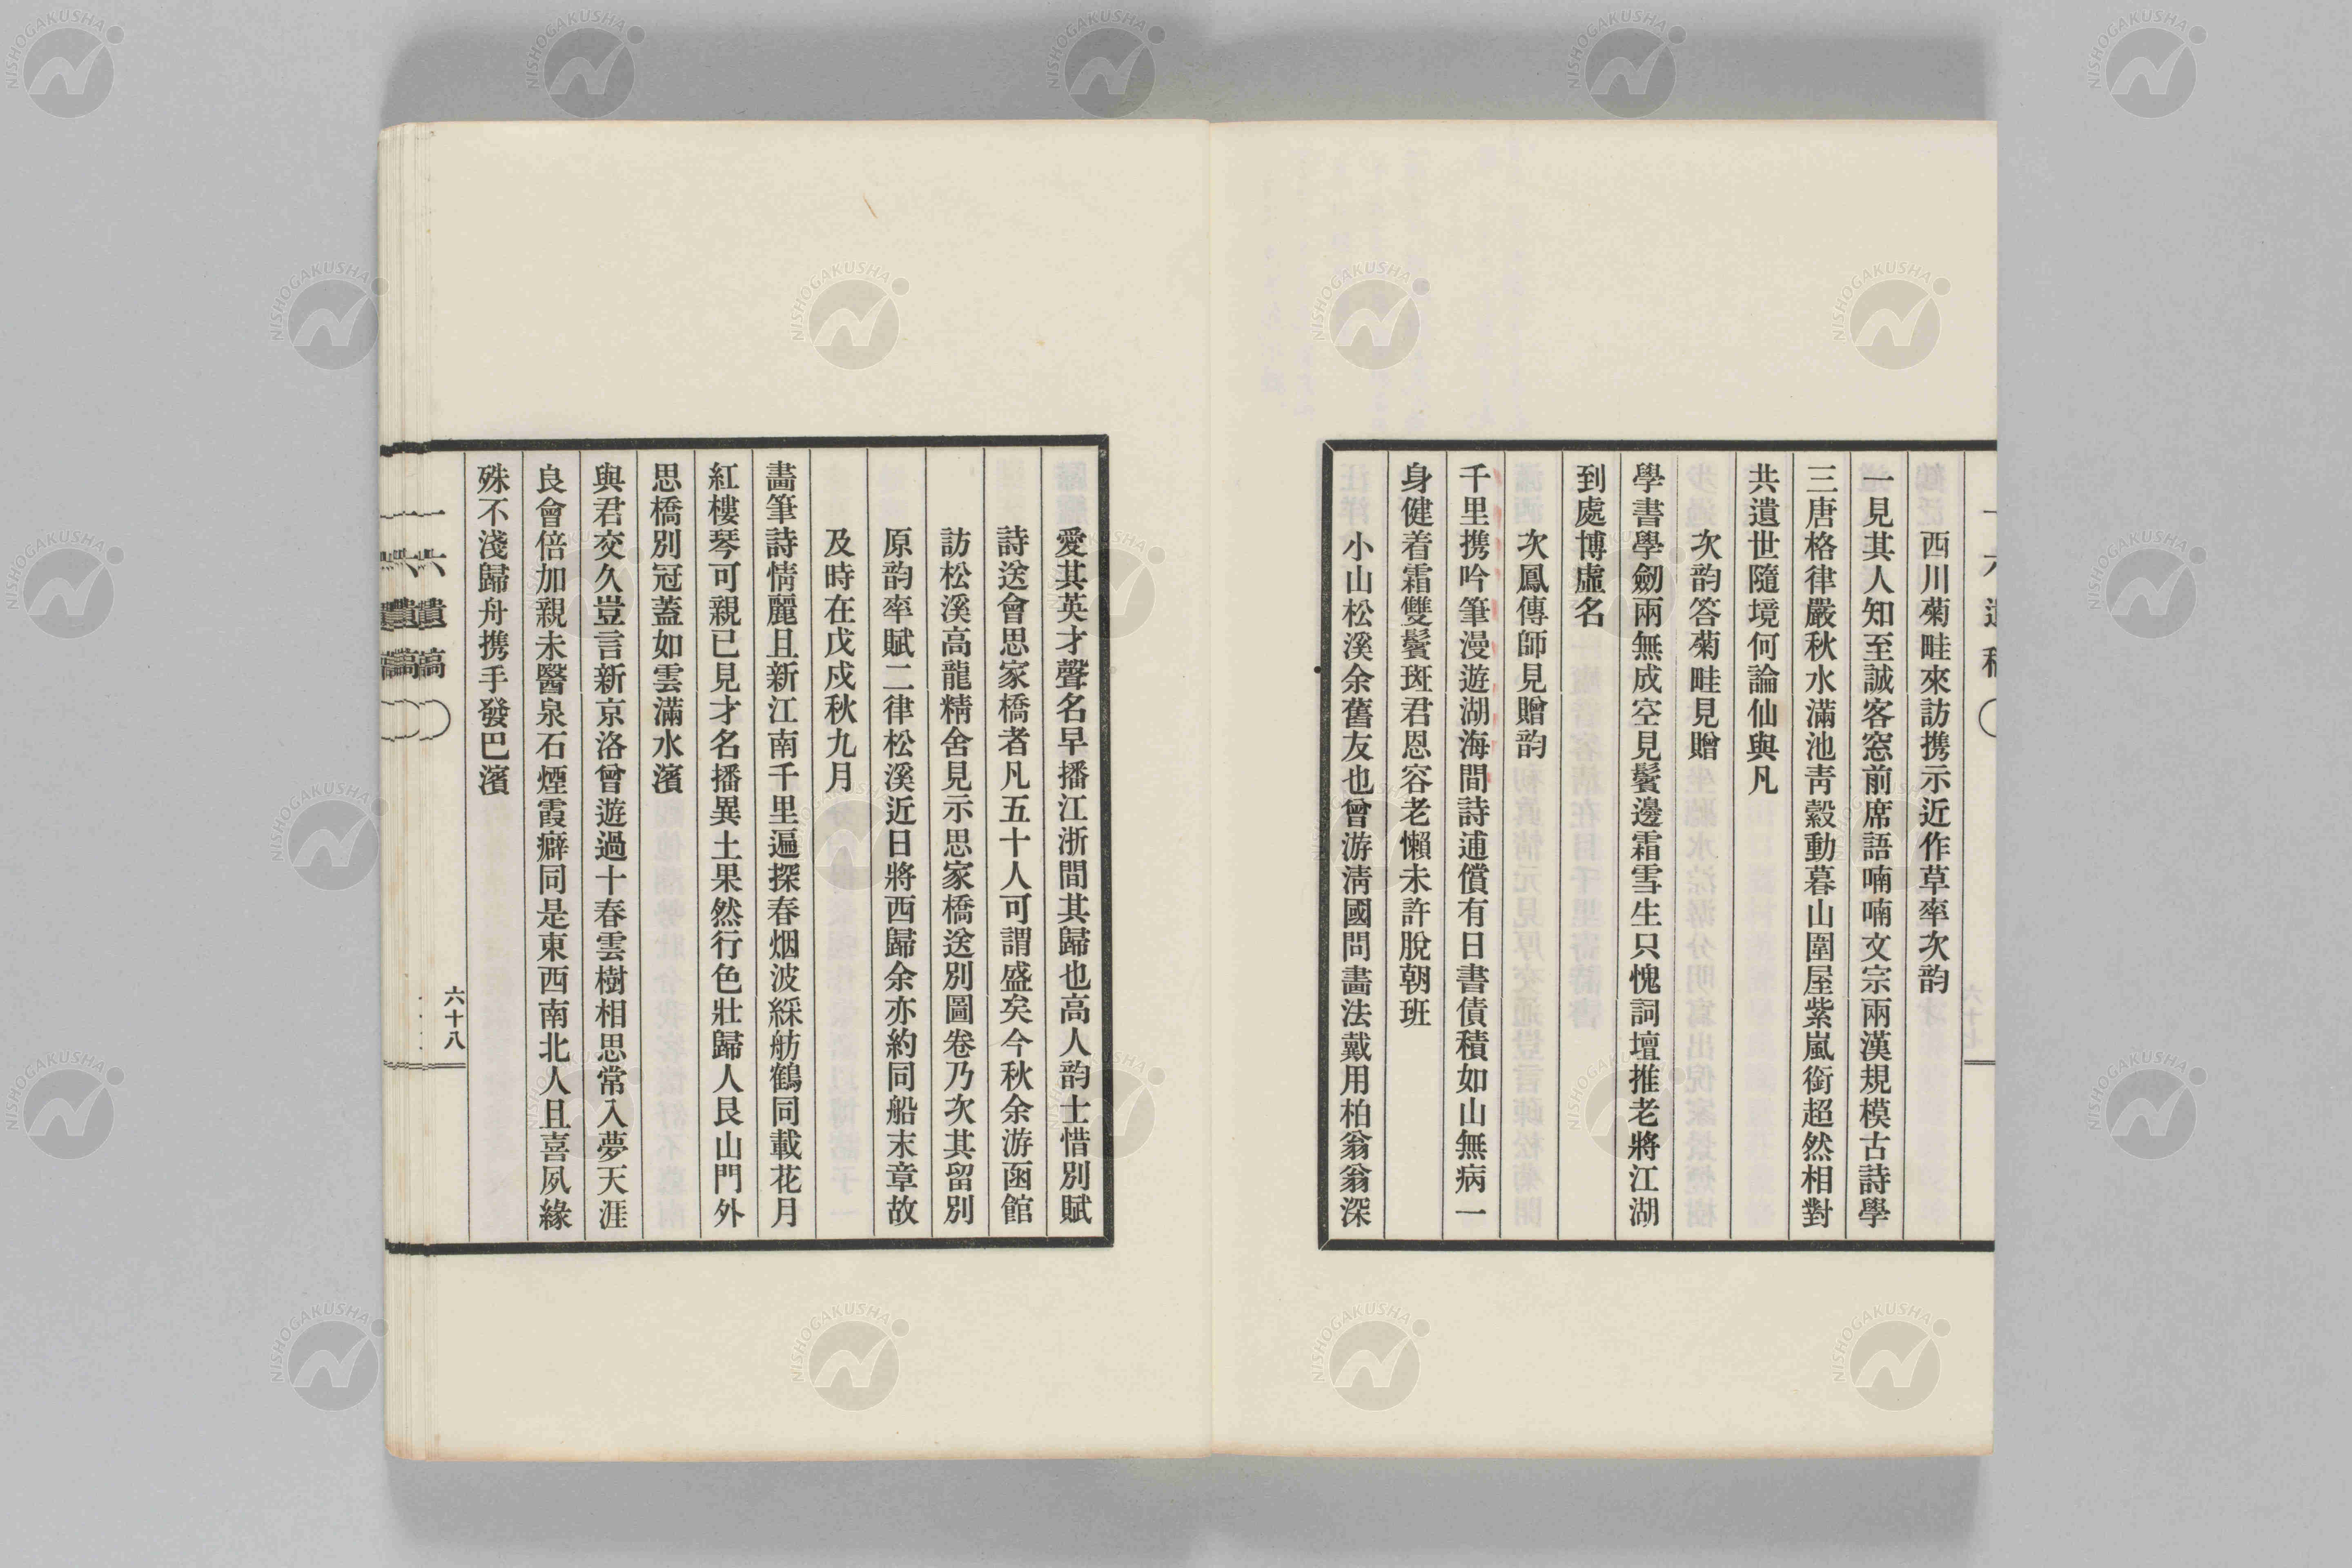 西川菊畦來訪携示近作草率次韵
一見其人知至誠客窓前席語喃喃文宗兩漢規模古詩學
三唐格律嚴秋水滿池靑縠動暮山圍屋紫嵐銜超然相對
共遺世隨境何論仙與凡
次韵答菊畦見贈
學書學劒兩無成空見鬢邊霜雪生只愧詞壇推老將江湖
到處博虛名
次鳳傳師見贈韵
千里携吟筆漫遊湖海間詩逋償有日書債積如山無病一
身健着霜雙鬢斑君恩容老懶未許脫朝班
小山松溪余舊友也曾游淸國問畵法戴用柏翁翁深
愛其英才聲名早播江浙間其歸也高人韵士惜別賦
詩送會思家橋者凡五十人可謂盛矣今秋余游函館
訪松溪高龍精舍見示思家橋送別圖卷乃次其留別
原韵率賦二律松溪近日將西歸余亦約同船末章故
及時在戊戍秋九月
畵筆詩情麗且新江南千里遍探春烟波綵舫鶴同載花月
紅樓琴可親已見才名播異土果然行色壯歸人艮山門外
思橋別冠蓋如雲滿水濱
與君交久豈言新京洛曾遊過十春雲樹相思常入夢天涯
良會倍加親未醫泉石煙霞癖同是東西南北人且喜夙緣
殊不淺歸舟携手發巴濱
一六遺稿
六十八
NISHOGAKUSHA